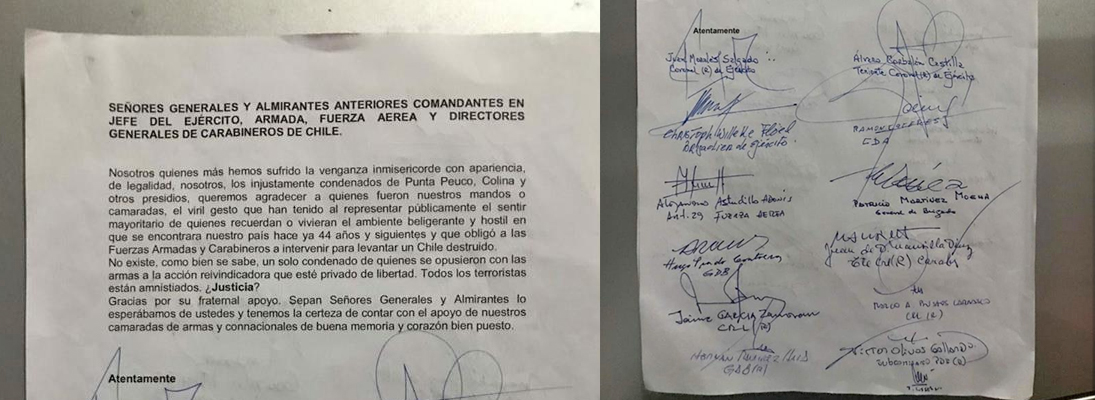 SEÑORES GENERALES Y ALMIRANTES ANTERIORES COMANDANTES EN
JEFE DEL EJÉRCITO, ARMADA, FUERZA AEREA Y DIRECTORES
GENERALES DE CARABINEROS DE CHILE.
Nosotros quienes más hemos sufrido la venganza inmisericorde con apariencia,
de legalidad, nosotros, los injustamente condenados de Punta Peuco, Colina y
otros presidios, queremos agradecer a quienes fueron nuestros mandos o
camaradas, el viril gesto que han tenido al representar públicamente el sentir
mayoritario de quienes recuerdan o vivieran el ambiente beligerante y hostil en
que se encontrara nuestro país hace ya 44 años y siguientes y que obligó a las
Fuerzas Armadas y Carabineros a intervenir para levantar un Chile destruido.
No existe, como bien se sabe, un solo condenado de quienes se opusieron con las
armas a la acción reivindicadora que esté privado de libertad. Todos los terroristas
están amnistiados. ¿Justicia?
Gracias por su fraternal apoyo. Sepan Señores Generales y Almirantes lo
esperábamos de ustedes y tenemos la certeza de contar con el apoyo de nuestros
camaradas de armas y connacionales de buena memoria y corazón bien puesto.
Atentamente
Atentamente
Juan Morales Salgado
Coronel (R) de Ejército
Álvaro Corbalán Castilla
Teniente Coronel (R) de Ejército
Christoph Willeke Flöel
Brigadier de Ejército
CDA
Alejandro Astudillo Adonis
Ant. 29 FUERZA AEREA
PATRICIO MARTINEZ MOENA
General de Brigada
Hugo Prado Contreras
GDB
Juan de
(R) Carab
Jaime GARCIA Zamorano
CRL (R)
(R)
(R)
Victor Olivos Gallardo
(R)